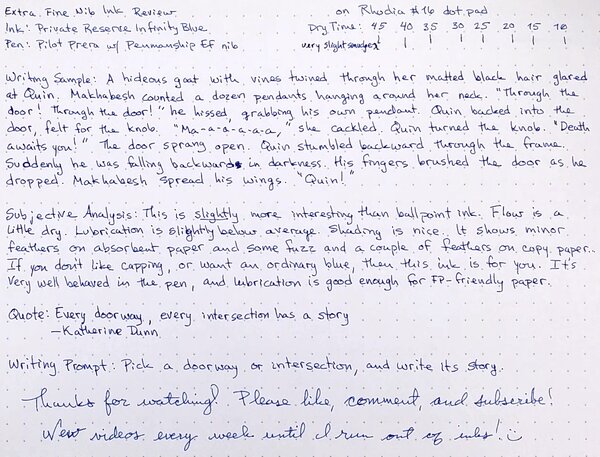 Extra Fine Nib Ink Review on Rhodia #16 dot pad
Ink: Private Reserve Infinity Blue Dry Time: 45 40 35 30 25 20 15 10
Pen: Pilot Prera w/ Penmanship EF nib very slight smudges
Writing Sample: A hideous goat with vines twined through her matted black hair glared
at Quin. Makhabesh counted a dozen pendants hanging around her neck. "Through the
door! Through the door!" he hissed, grabbing his own pendant. Quin backed into the
door, felt for the knob. "Ma-a-a-a-a-a," she cackled. Quin turned the knob. "Death
awaits you!" The door sprang open. Quin stumbled backward through the frame.
Suddenly he was falling backwards in darkness. His fingers brushed the door as he
dropped. Makhabesh spread his wings. "Quin!"
Subjective Analysis: This is slightly more interesting than ballpoint ink. Flow is a
little dry. Lubrication is slightly below average. Shading is nice. It shows minor
feathers on absorbent paper and some fuzz and a couple of feathers on copy paper.
If you don't like capping, or want an ordinary blue, then this ink is for you. It's
very well behaved in the pen, and lubrication is good enough for FP-friendly paper.
Quote: Every doorway, every intersection has a story
—Katherine Dunn
Writing Prompt: Pick a doorway or intersection, and write its story.
Thanks for watching! Please like, comment, and subscribe!
New videos every week until I run out of inks!